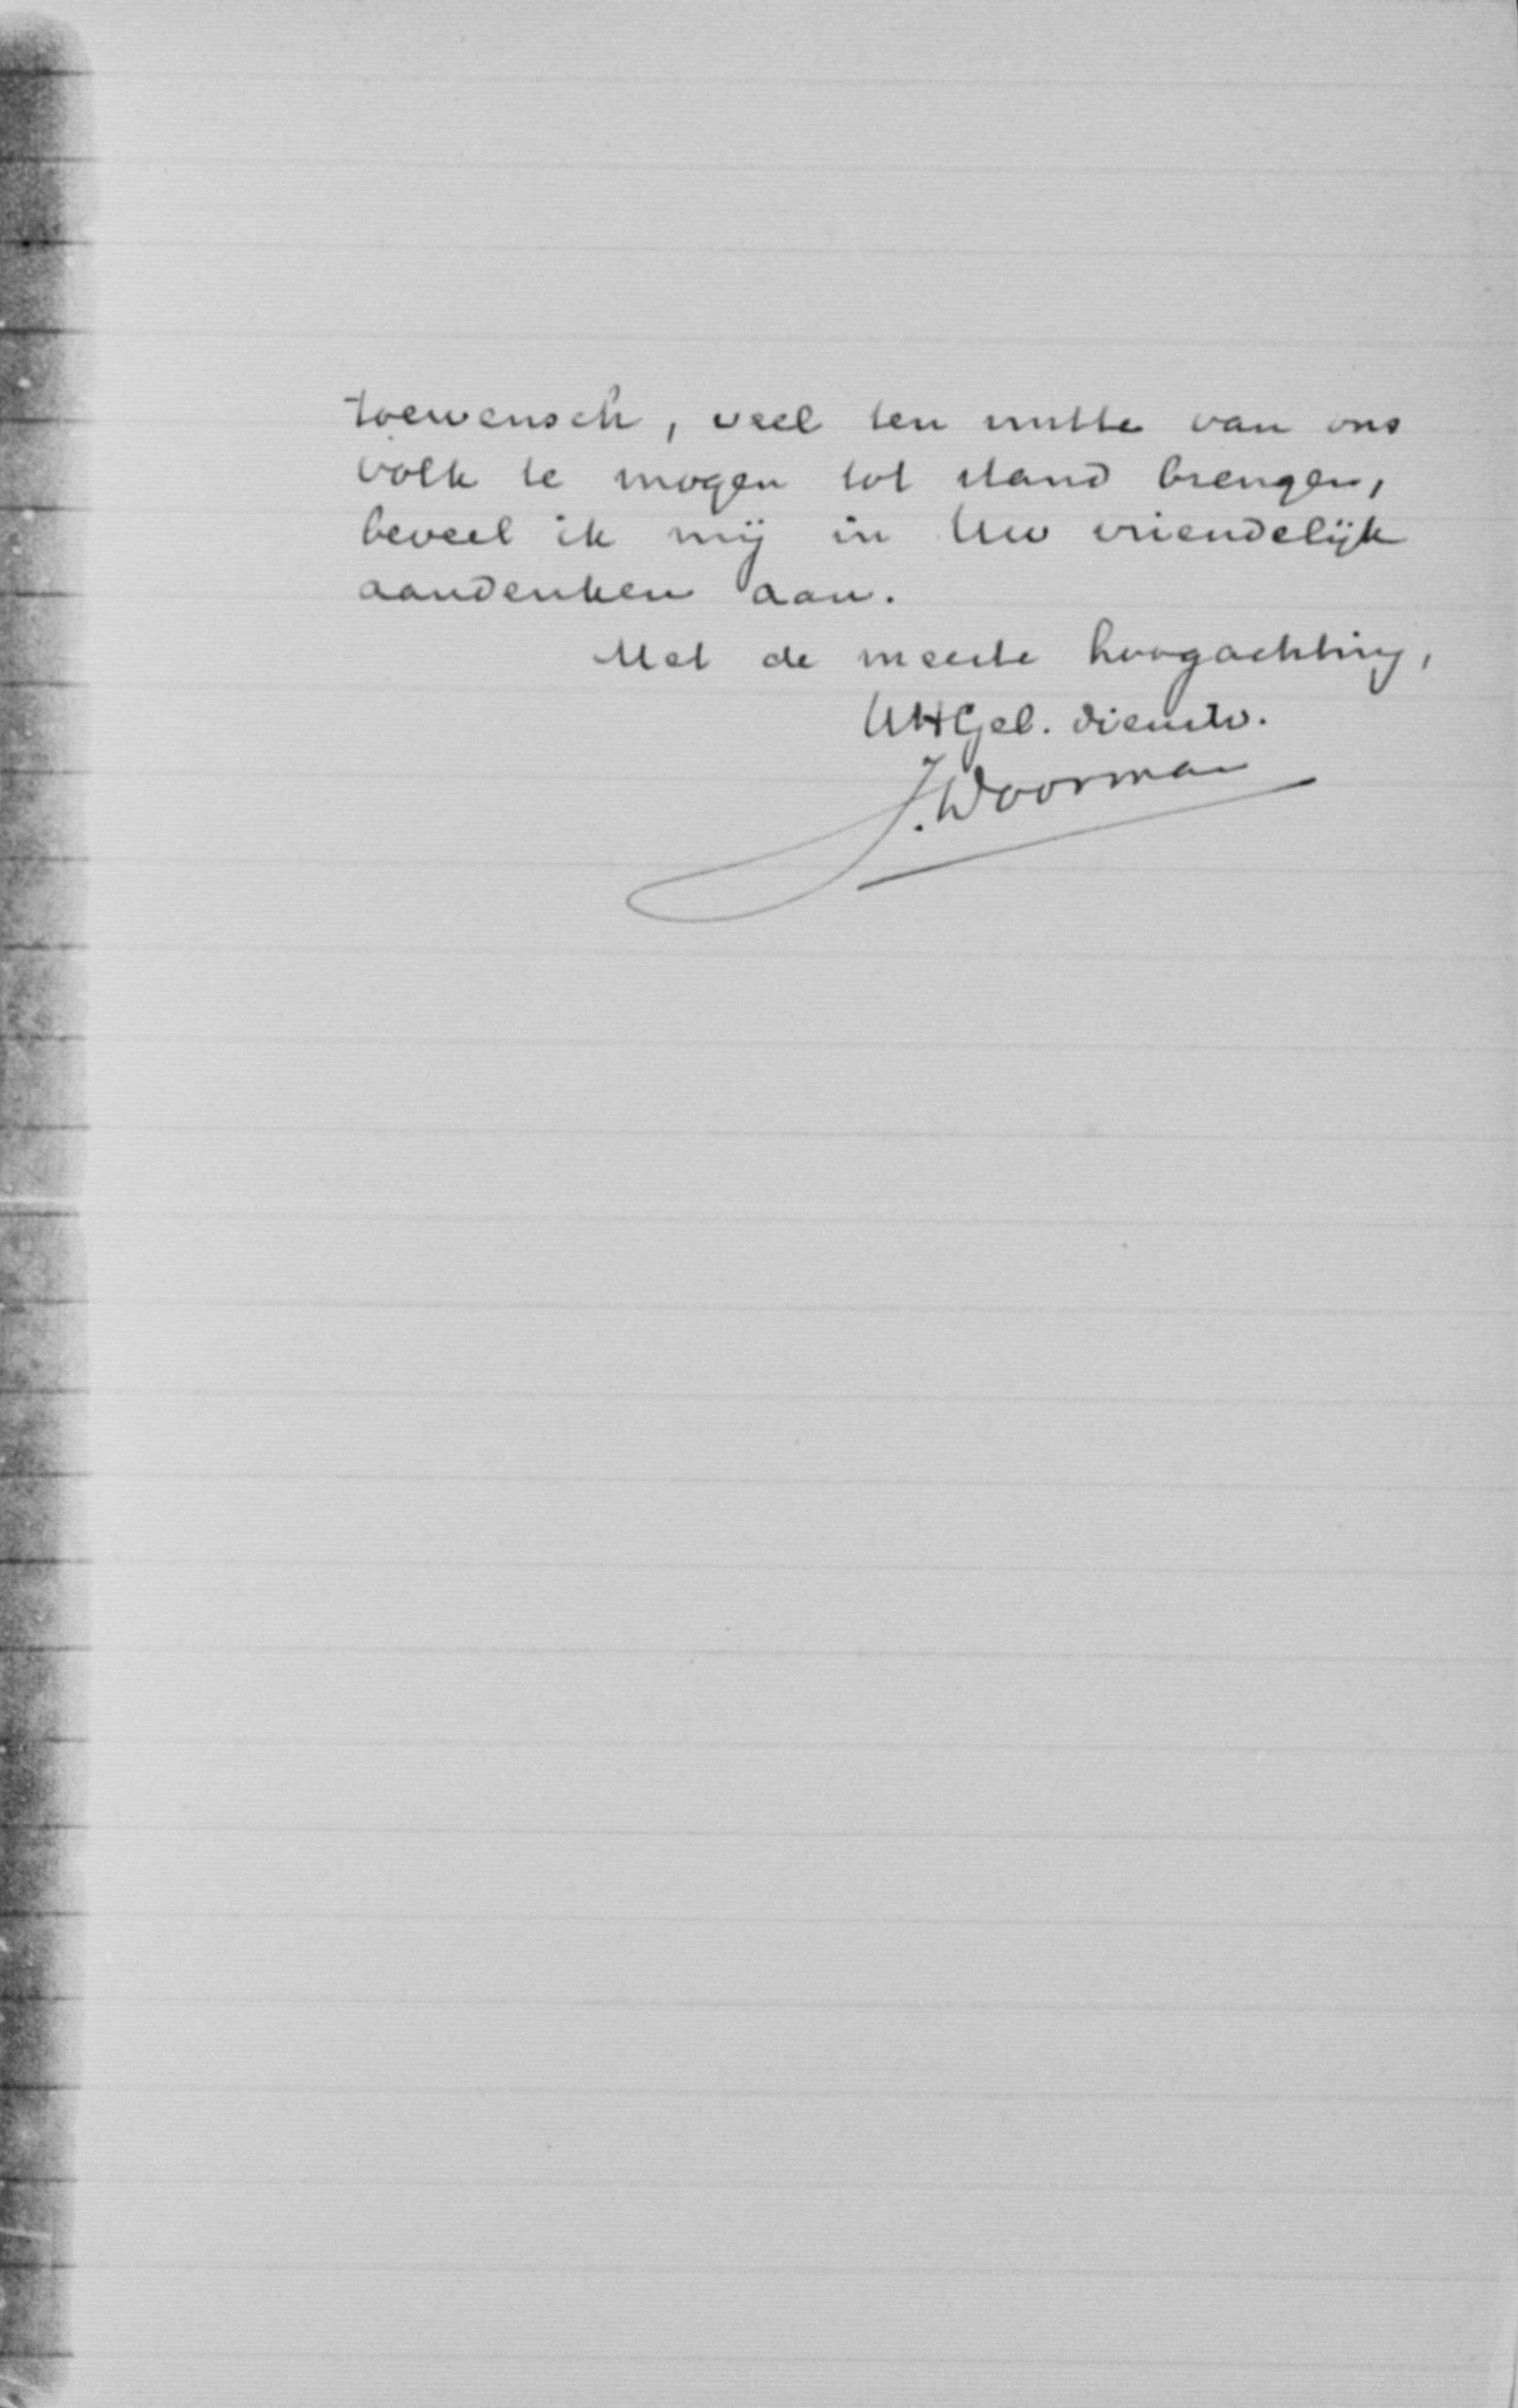 toewensch, veel ten nutte van ons
volk te mogen tot stand brengen,
beveel ik mij in Uw vriendelijk
aandenken aan.
Met de meeste hoogachting,
UHGel. dienstv.
J. Woorman